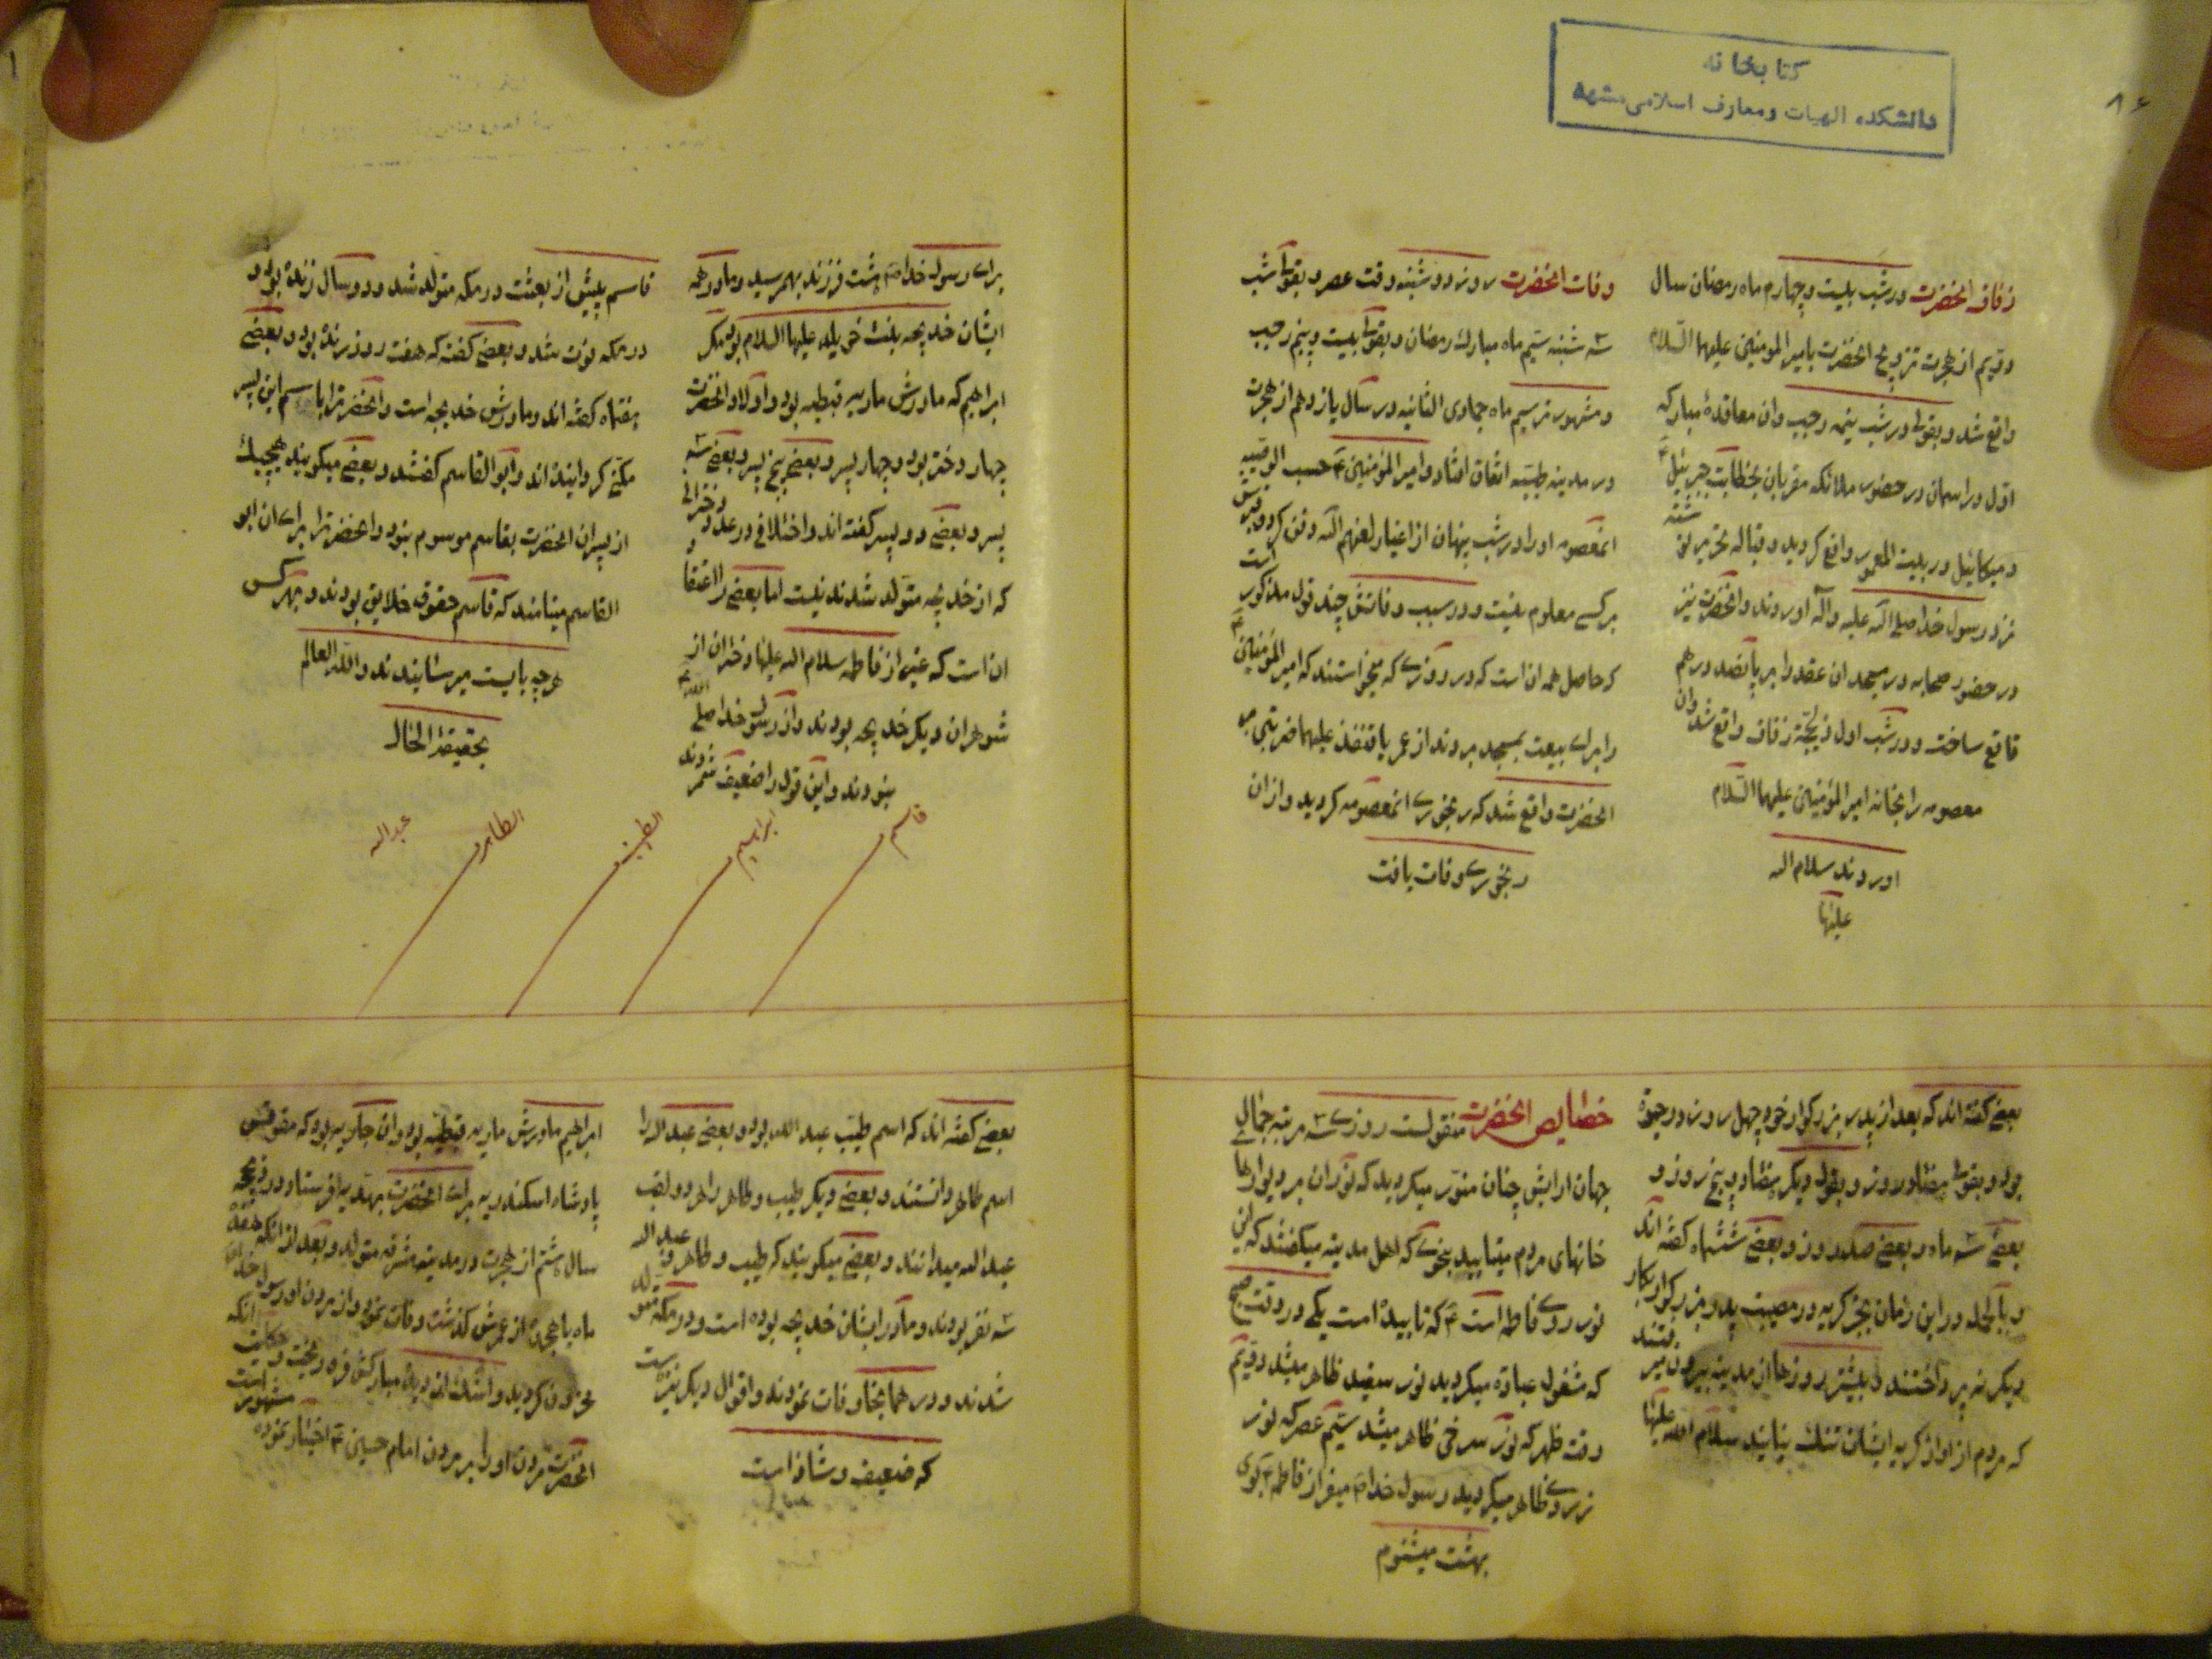 کتابخانه
دانشکده الهیات ومعارف اسلامی مشهد
۸۶
زفاف انحضرت در شب بیست وچهارم ماه رمضان سال
دویم از هجرت تزویج انحضرت بامیر المومنین علیهما السلام
واقع شد وبقولی در شب نیمه رجب وان معاقدهٔ مبارکه
اول در اسمان در حضور ملائکه مقربان بخطابت جبرئیل
ومیکائیل در بیت المعمور واقع کردید وقباله تحریر
نزد رسول خدا صلی الله علیه وآله اوردند وانحضرت نیز
در حضور صحابه در مسجد ان عقد را بر پانصد درهم
واقع ساخت ودر شب اول ذیحجة زفاف واقع شد وان
معصومه را بخانه امیر المؤمنین علیهما السلام
اوردند سلام الله
علیها
وفات انحضرت روز دوشنبه وقت عصر وبقولی شب
سه شنبه سیم ماه مبارک رمضان وبقولی بیست وپنجم رجب
ومشهورتر سیم ماه جمادی الثانیه در سال یازدهم از هجرت
در مدینه طیبه اتفاق افتاد وامیر المؤمنین حسب الوصیه
انمعصومه او را در شب پنهان از اغیار لعنهم الله دفن کرد وقبرش
بر کسی معلوم نیست ودر سبب وفاتش چند قول مذکور است
که حاصل همه ان است که در روزی که میخواستند که امیر المؤمنین
را برای بیعت بمسجد برند از عمر یا قنفذ علیهما ضربتی بر
انحضرت واقع شد که رنجوری انمعصومه کردید وازان
رنجوری وفات یافت
بعضی کفته اند که بعد از پدر بزرکوار خود چهل روز در حیوة
بود وبقولی هفتاد روز وبقول دیکر هفتاد وپنج روز و
بعضی سه ماه وبعضی صد روز وبعضی ششماه کفته اند
وبالجمله در این زمان بجز کریه در مصیبت پدر بزرکوار بکار
دیکر نه پرداختند وبیشتر روزها از مدینه بیرون میرفتند
که مردم از اواز کریه ایشان تنک نیایند سلام الله علیها
خصایص انحضرت منقولست روزی سه مرتبه جمال
جهان ارایش چنان منور میکردید که نور ان بر دیوارها
خانهای مردم میتابید بنحوی که اهل مدینه میکفتند که این
نور روی فاطمه است که تابیده است یکی در وقت صبح
که مشغول عبادة میکردید نور سفید ظاهر میشد دویم
وقت ظهر که نور سرخی ظاهر میشد سیم عصر که نور
زردی ظاهر میکردید رسول خدا میفر از فاطمه بوی
بهشت میشنوم
برای رسول خدا هشت فرزند بهمرسید ومادر همه
ایشان خدیجه بنت خویلد علیها السلام بود مکر
ابراهیم که مادرش ماریه قبطیه بود واولاد انحضرت
چهار دختر بود وچهار پسر وبعضی پنج پسر وبعضی سه
پسر وبعضی دو پسر کفته اند واختلافی در عدد دخترانی
که از خدیجه متولد شدند نیست اما بعضی را اعتقاد
ان است که غیر از فاطمه سلام الله علیها دختران از
شوهران دیکر خدیجه بودند واز رسول خدا صلی
نبودند واین قول را ضعیف شمردند
قاسم پیش از بعثت در مکه متولد شد ودو سال زنده بود و
در مکه فوت شد وبعضی کفت که هفت روز زنده بود وبعضی
هفتماه کفته اند ومادرش خدیجه است وانحضرترا باسم این پسر
مکنی کردانیده اند وابو القاسم کفتند وبعضی میکویند هیچیک
از پسران انحضرت بقاسم موسوم نبود وانحضرترا برای ان ابو
القاسم مینامند که قاسم حقوق خلایق بودند وبهرکس
هرچه بایست میرسانیدند والله العالم
بحقیقة الحال
قاسم
ابراهیم
الطیب
الطاهر
عبدالله
بعضی کفته اند که اسم طیب عبد الله بود وبعضی عبد الله را
اسم طاهر دانستند وبعضی دیکر طیب وطاهر را هر دو لقب
عبد الله میدانند وبعضی میکویند که طیب وطاهر وعبد الله
سه نفر بودند ومادر ایشان خدیجه بوده است ودر مکه متولد
شدند ودر همانجا وفات نمودند واقوال دیکر نیز هست
که ضعیف وشاذ است
ابراهیم مادرش ماریه قبطیه بود وان جاریه بود که مقوقس
پادشاه اسکندریه برای انحضرت بهدیه فرستاد ودر ذیحجه
سال هشتم از هجرت در مدینه مشرفه متولد وبعد از انکه
ماه یا هجده از عمرش کذشت وفات نمود واز مردن او رسول خدا
محزون کردید واشک از دیده مبارکش فرو ریخت وحکایت انکه
انحضرت مردن او را بر مردن امام حسین اختیار نموده مشهور است